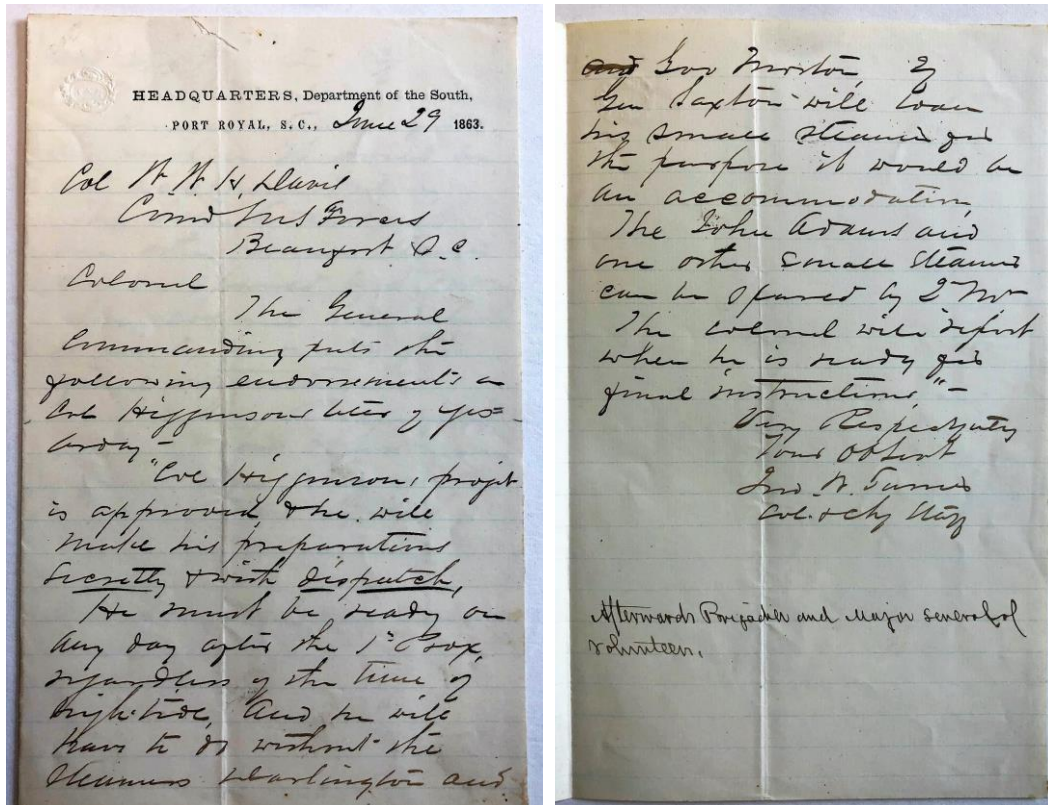 HEADQUARTERS, Department of the South,
PORT ROYAL, S. C., June 29 1863.
Col W. W. H. Davis
Comd U.S. Forces
Beaufort S. C.
Colonel
The General
Commanding puts the
following endorsements on
Col Higginsons letter of yes-
terday -
"Col Higginsons project
is approved, & he will
make his preparations
secretly & with dispatch,
He must be ready on
any day after the 1st Prox,
regardless of the time of
high-tide, and he will
have to do without the
steamers Darlington and
and Gov Morton, If
Gen Saxton will loan
his small steamer for
the purpose it would be
an accommodation
The John Adams and
one other small steamer
can be spared by 2d
The colonel will report
when he is ready for
final instructions," -
Very Respectfully
Your Obt Servt
Jno. W. Turner
Col. & Chf Staff
Afterwards Brigadier and Major General of
Volunteers.